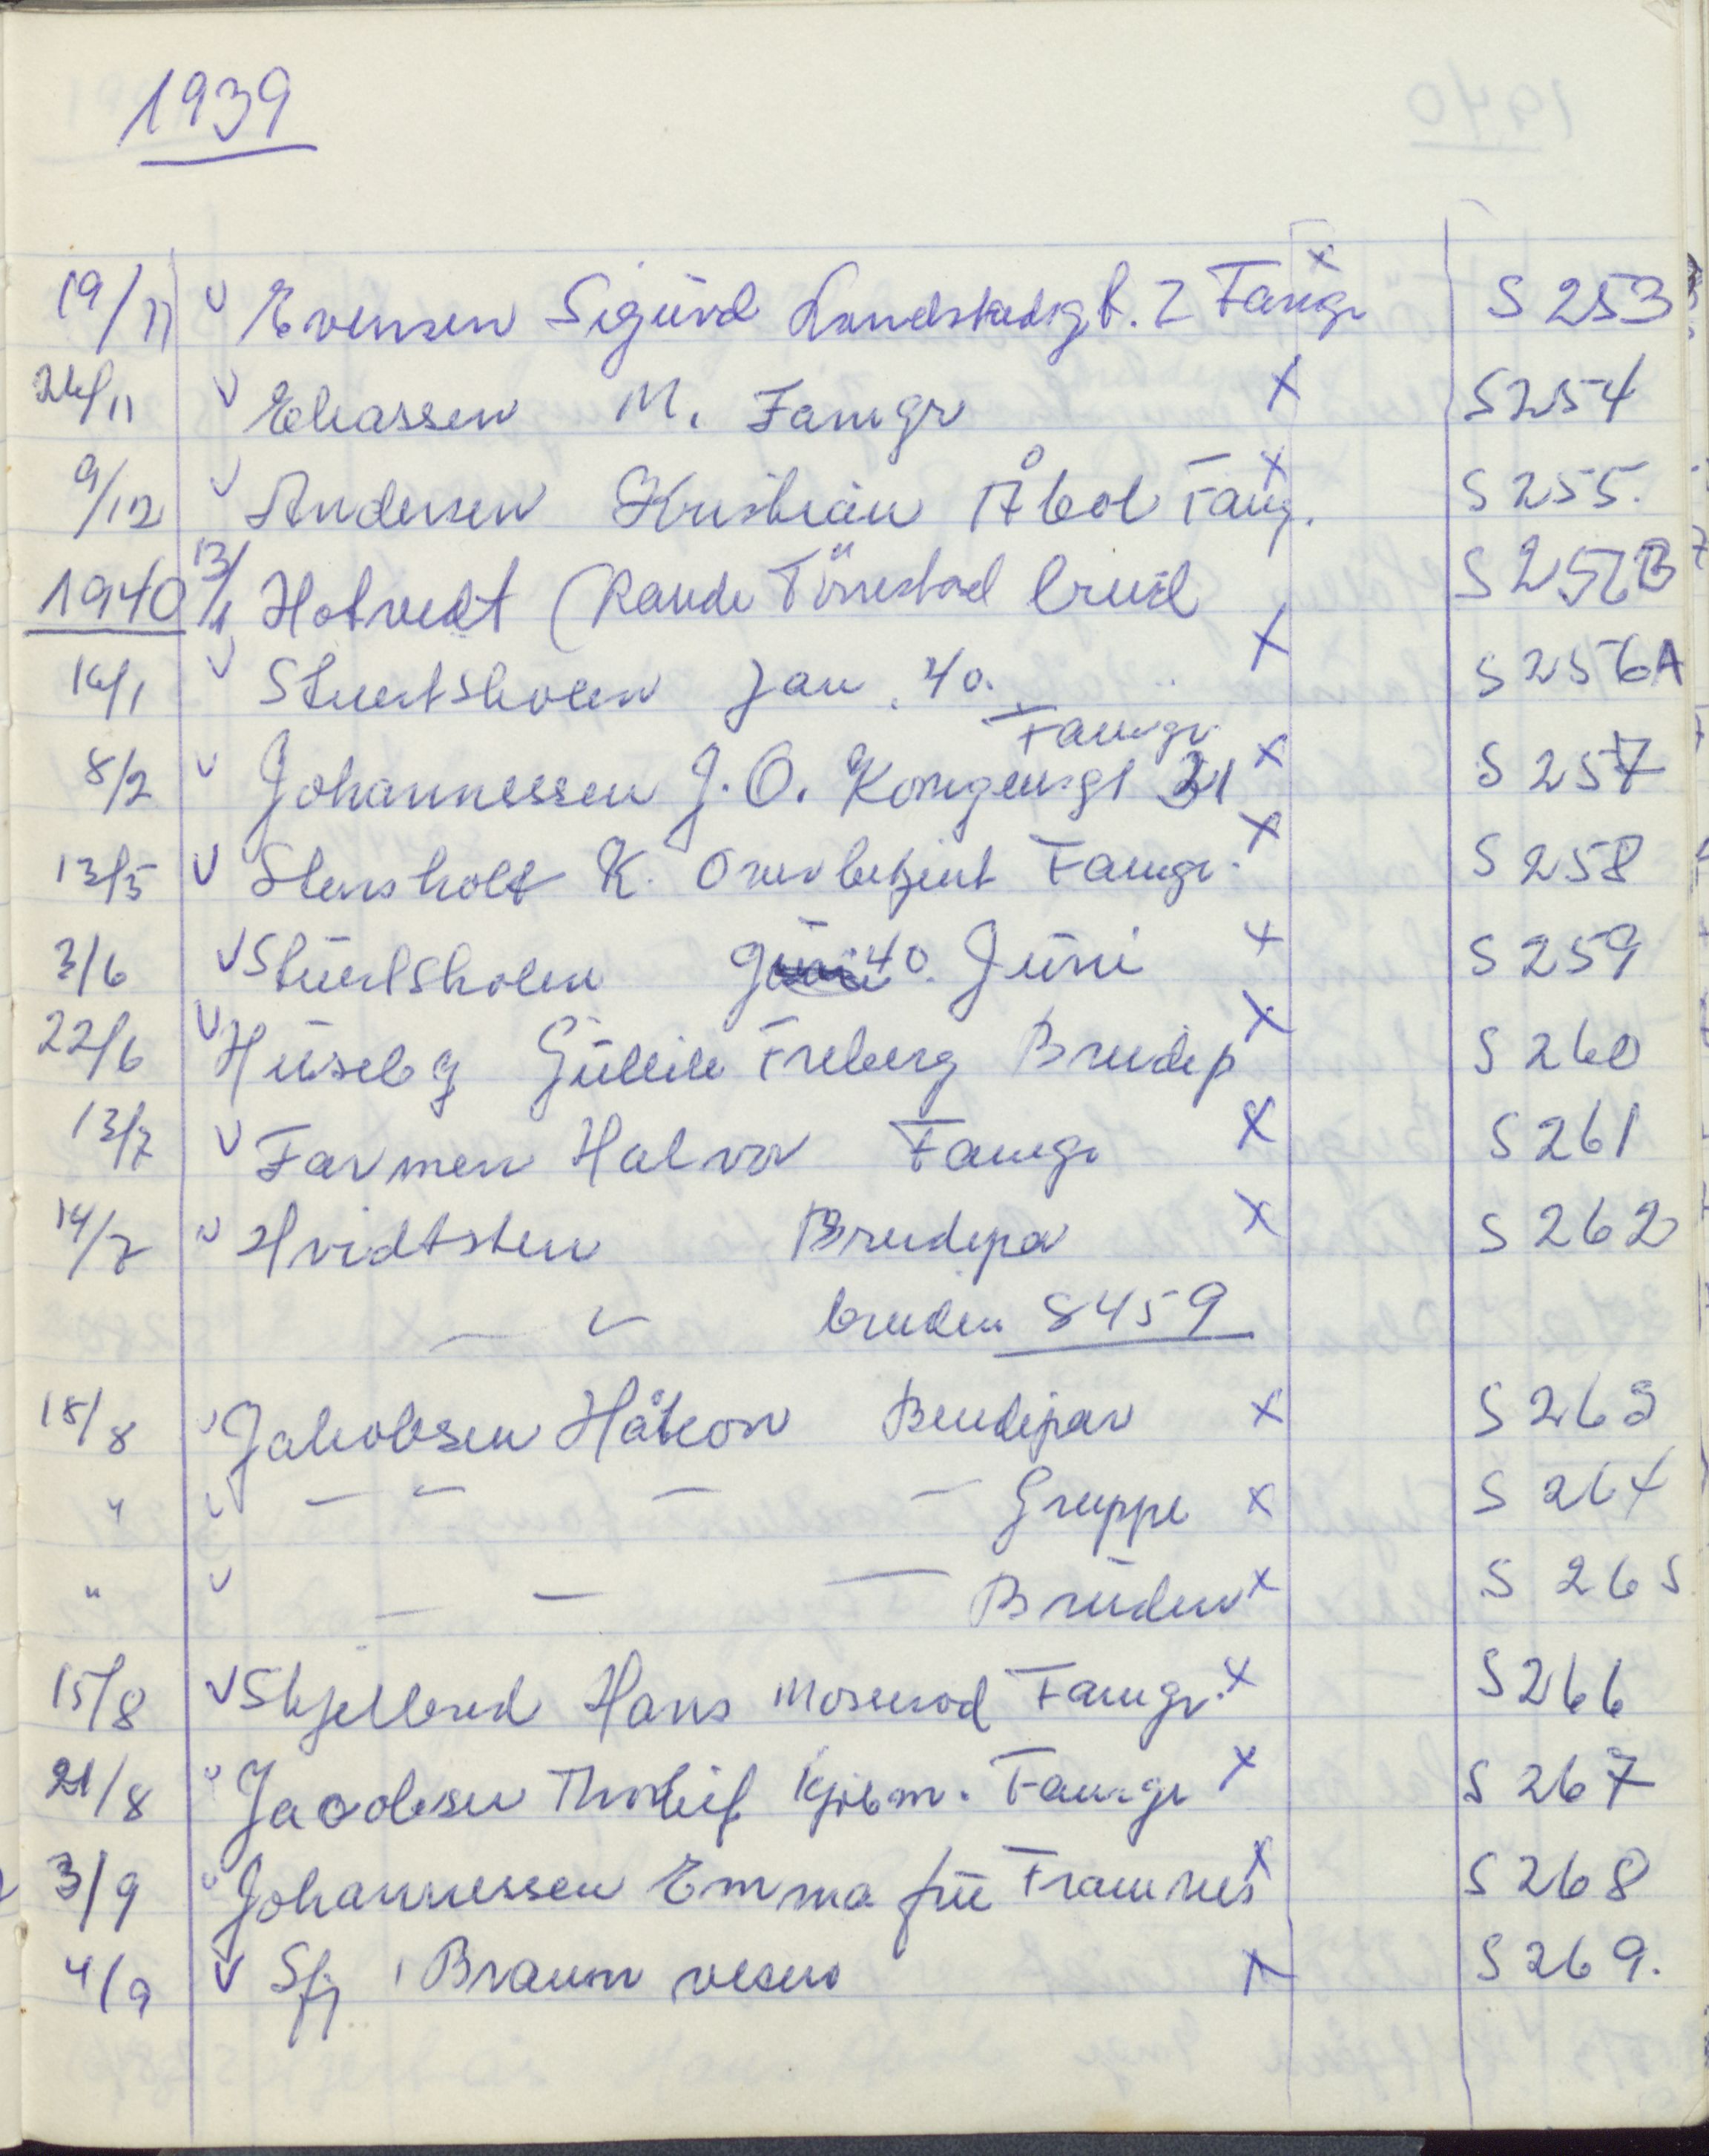 1939
19/11 v Evensen Sigurd Landstadsgt. 2 Famgr x S 253
24/11 v Eliassen M. Famgr x S 254
9/12 v Andersen Kristian Åbol Famg. x S 255.
1940 13/1 Hotvedt (Rande Tönnestad brud S 256B
14/1 v Stuertsholen Jan. 40. x S 256A
Famgr
8/2 v Johannessen J. O. Kongensgt 21 x S 257
13/5 v Stensholt K. Overbetjent Famgr. x S 258
3/6 v Stuertsholen 40. Juni x S 259
22/6 v Huseby Gulleik Freberg Brudep x S 260
13/7 v Farmen Halvor Famgr x S 261
14/7 v Hvidtsten Brudepar x S 262
— " bruden 8459
18/8 v Jakobsen Håkon Brudepar x S 263
" v — — — — Gruppe x S 264
" v — — — Bruden x S 265
15/8 v Skjelbred Hans Moserod Famgr. x S 266
21/8 v Jacobsen Thorleif Kjøbm. Famgr x S 267
3/9 v Johannessen Emma fru Framnes x S 268
4/9 v Sfj, Braum x S 269.